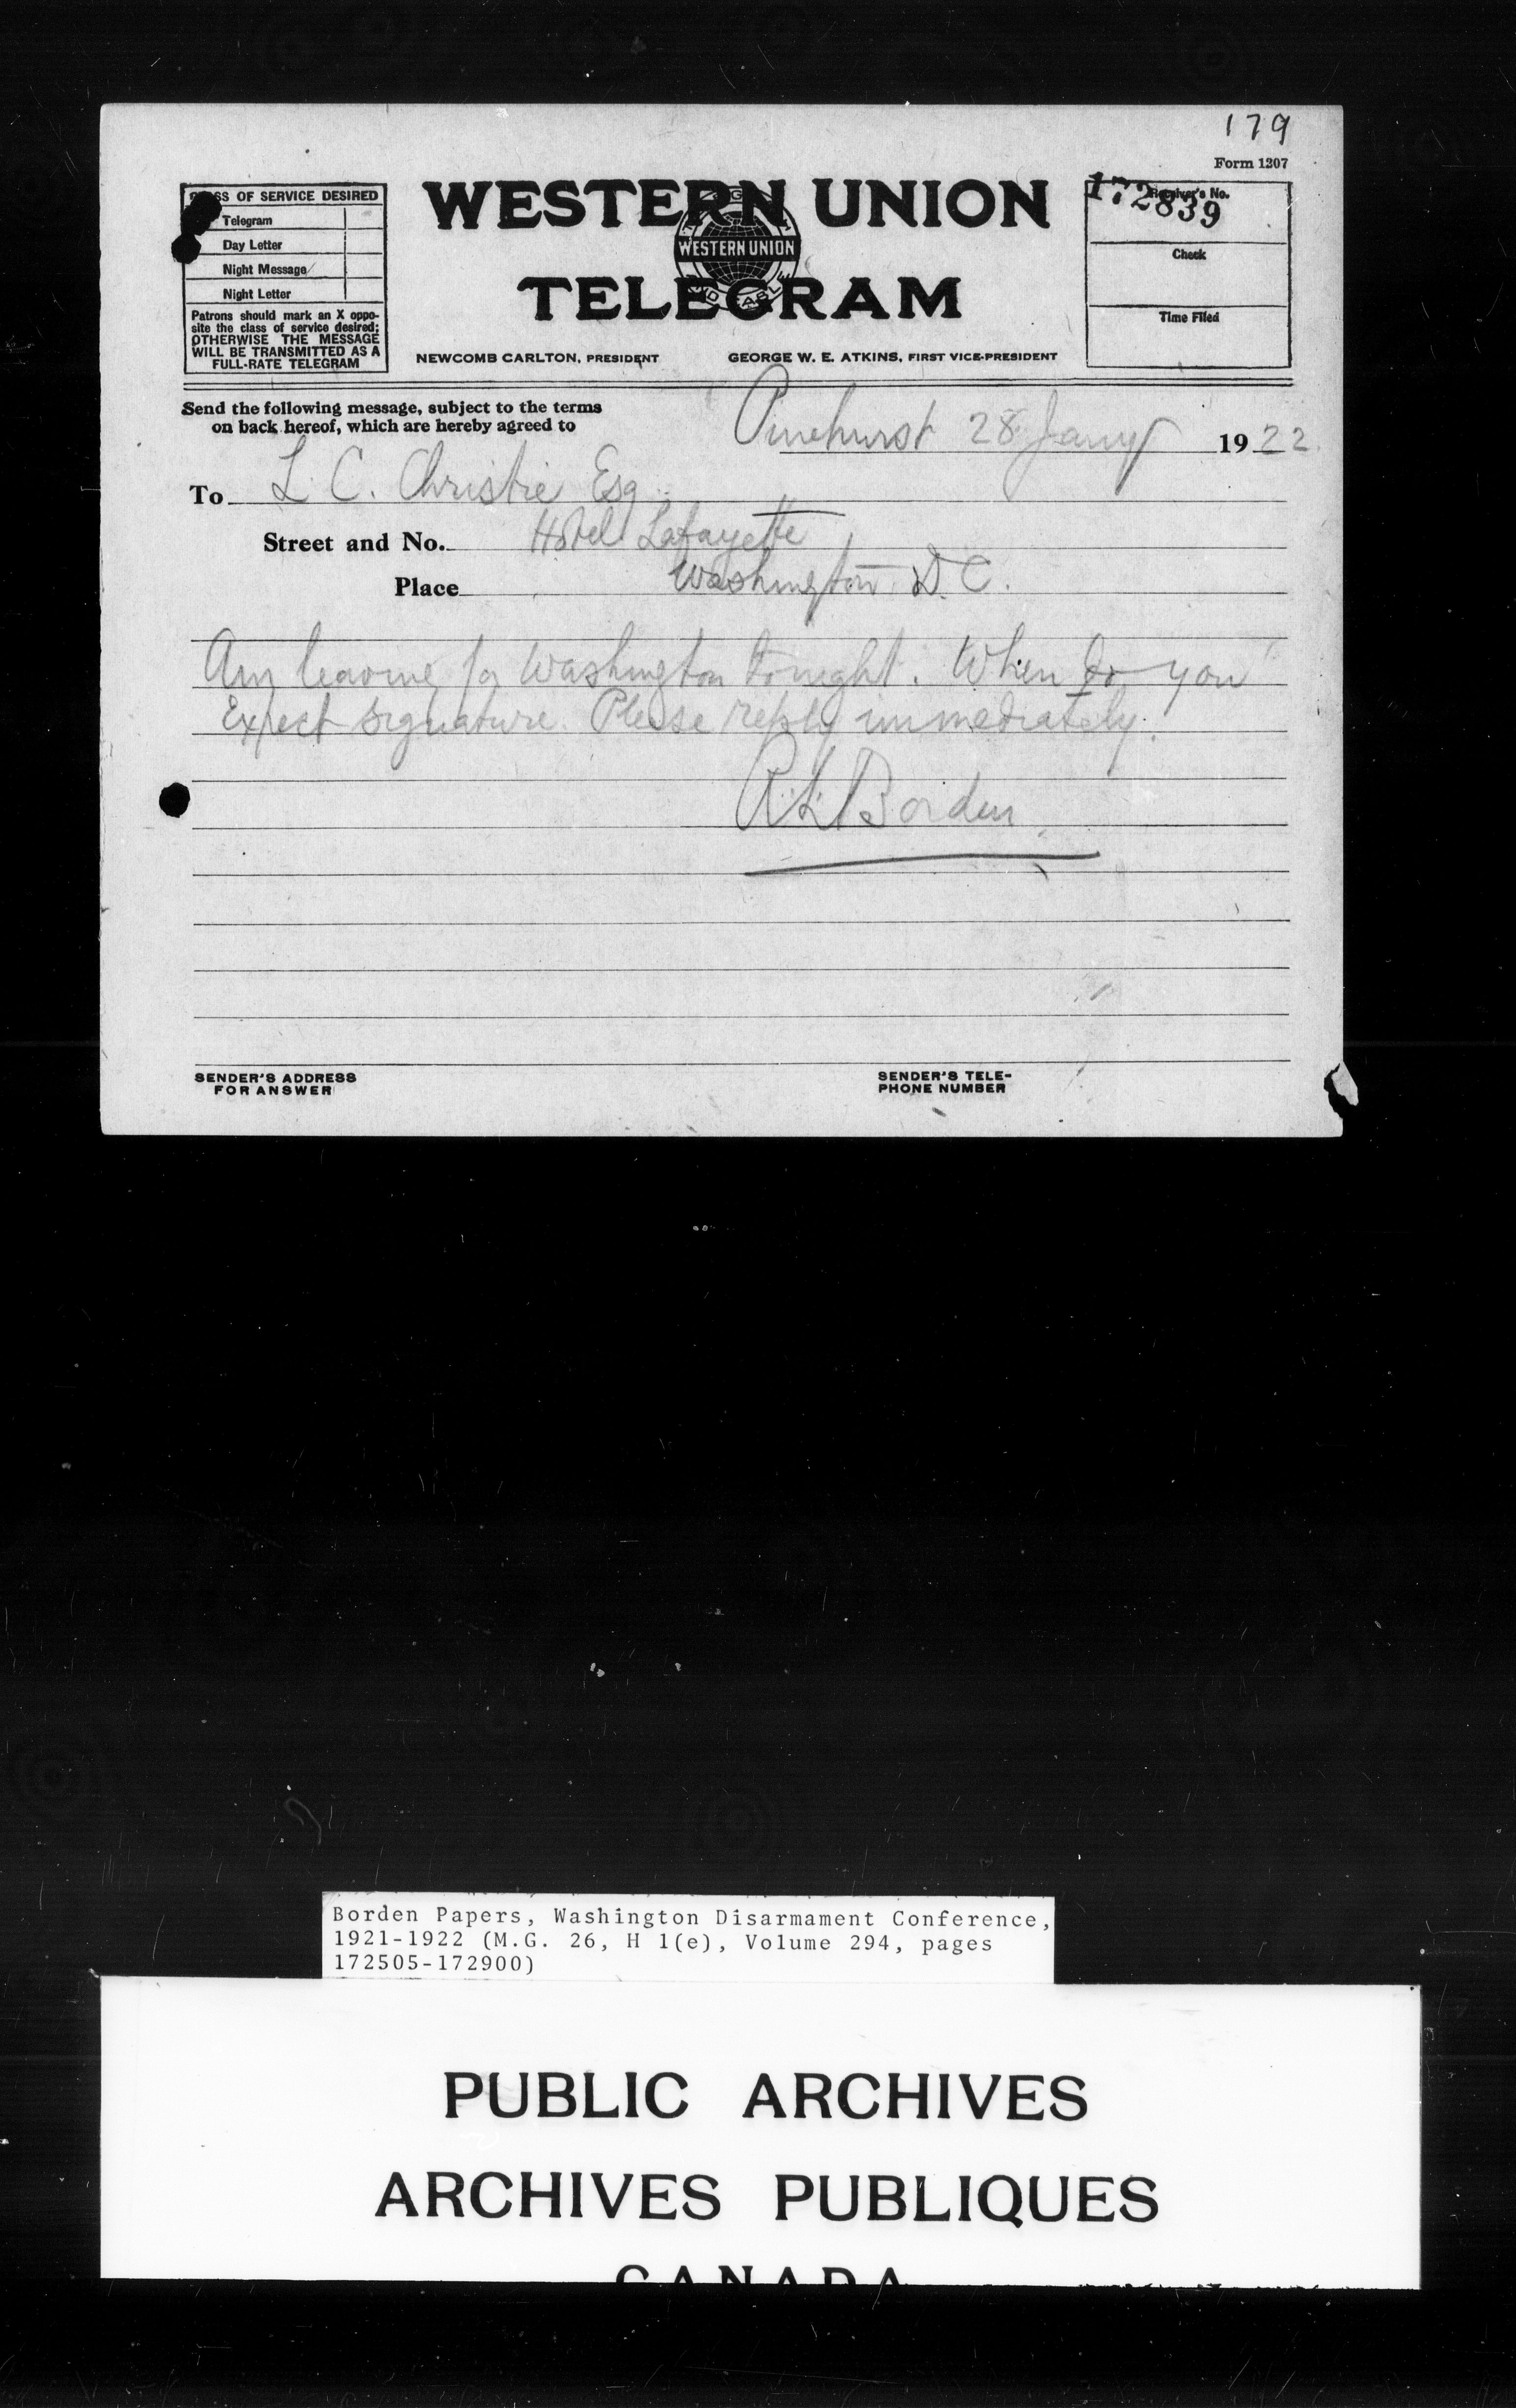 179
Form 1207
CLASS OF SERVICE DESIRED
Telegram
Day Letter
Night Message
Night Letter
Patrons should mark an X oppo-
site the class of service desired;
OTHERWISE THE MESSAGE
WILL BE TRANSMITTED AS A
FULL-RATE TELEGRAM
WESTERN UNION
WESTERN UNION
TELEGRAM
NEWCOMB CARLTON, PRESIDENT GEORGE W. E. ATKINS, FIRST VICE-PRESIDENT
Receiver's No.
172839
Check
Time Filed
Send the following message, subject to the terms
on back hereof, which are hereby agreed to
Pinehurst 28 Jany 1922
To L. C. Christie Esq
Street and No. Hotel Lafayette
Place Washington D.C.
Am leaving for Washington tonight. When do you
Expect signature. Please reply immediately.
R L Borden
SENDER'S ADDRESS
FOR ANSWER
SENDER'S TELE-
PHONE NUMBER
Borden Papers, Washington Disarmament Conference,
1921-1922 (M.G. 26, H 1(e), Volume 294, pages
172505-172900)
PUBLIC ARCHIVES
ARCHIVES PUBLIQUES
CANADA